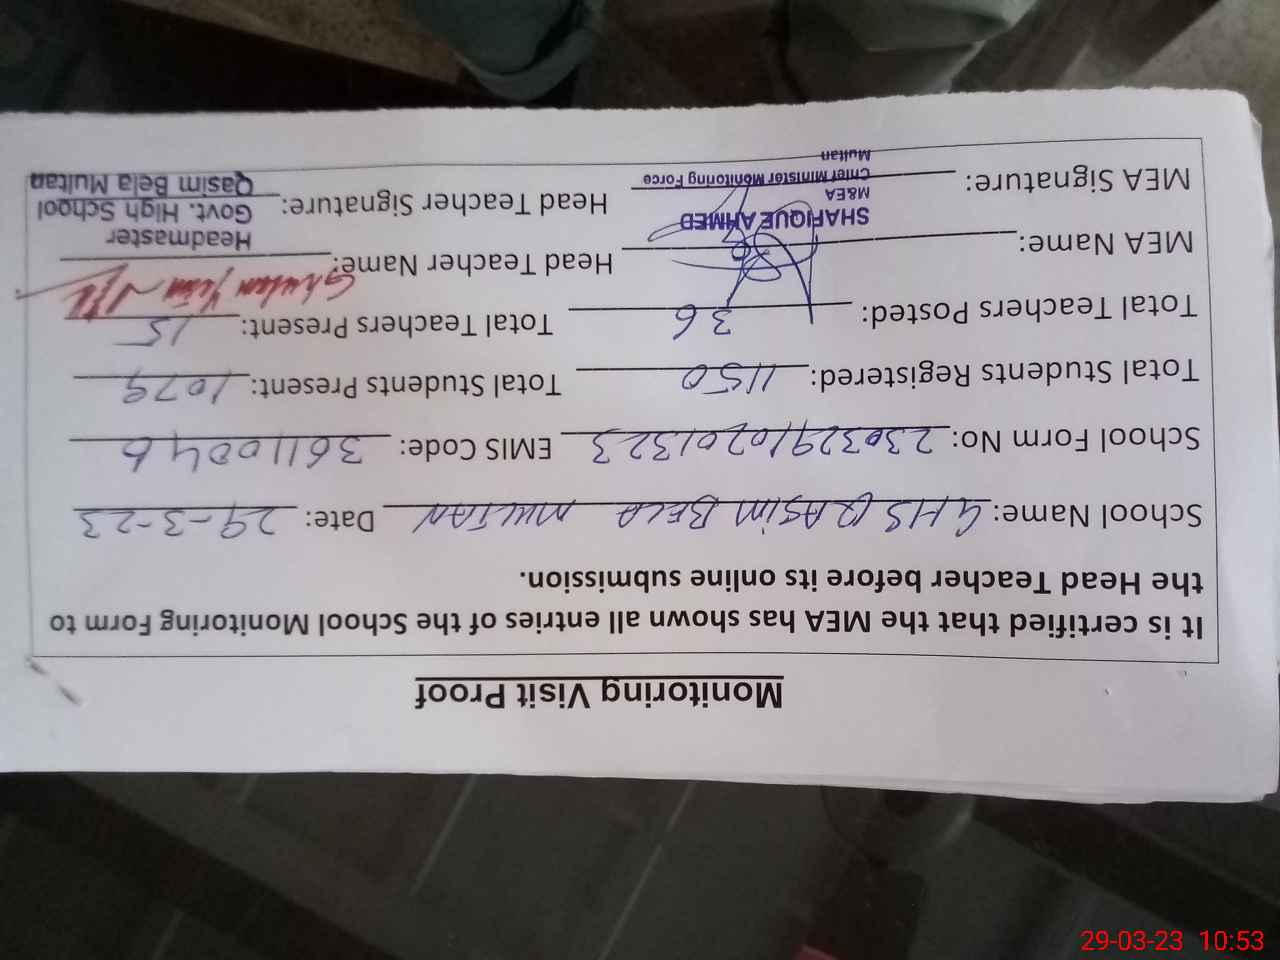 Monitoring Visit Proof
It is certified that the MEA has shown all entries of the School Monitoring Form to
the Head Teacher before its online submission.
School Name: GHS QASIM BELA MULTAN Date: 29-3-23
School Form No: 23032910201323 EMIS Code: 36110046
Total Students Registered: 1150 Total Students Present: 1079
Total Teachers Posted: 36 Total Teachers Present: 15
MEA Name: Head Teacher Name:
Headmaster
SHAFIQUE AHMED
Govt. High School
M&EA
MEA Signature: Chief Minister Monitoring Force Head Teacher Signature: Qasim Bela Multan
Multan
29-03-23 10:53